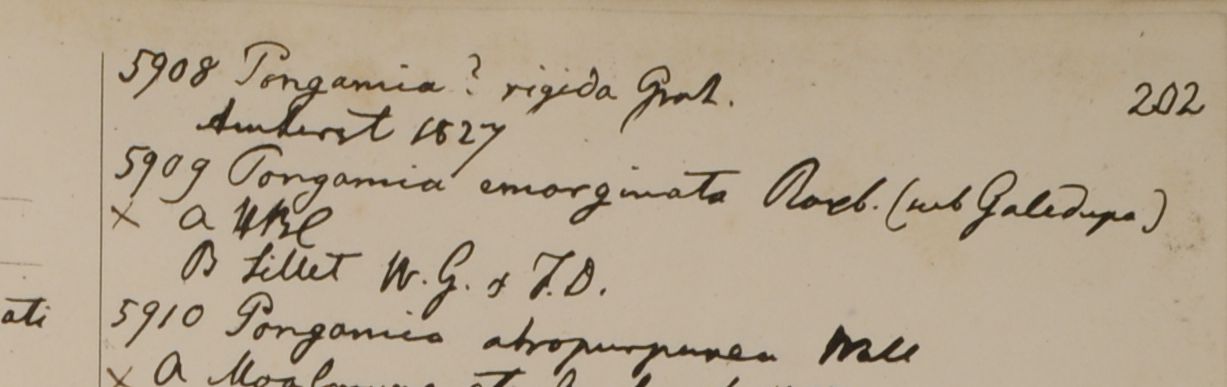 202
5908 Pongamia? rigida Grah.
Amherst 1827
5909 Pongamia emarginata Roxb. (sub Galedupa)
× a HBC
B Sillet W.G. & F.D.
ati
5910 Pongamia atropurpurea Wall
× a